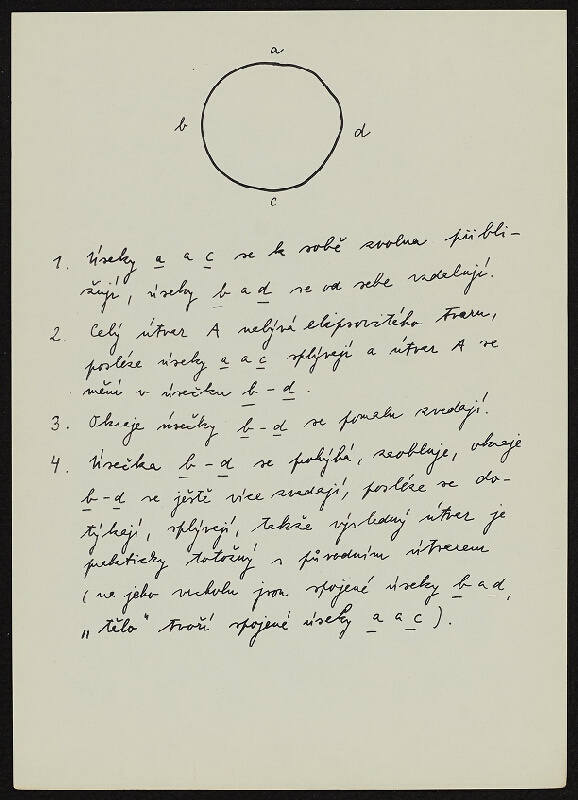 a
b
d
c
1. Úseky a a c se k sobě zvolna přibli-
žují, úseky b a d se od sebe vzdalují.
2. Celý útvar A nabývá elipsovitého tvaru,
posléze úseky a a c splývají a útvar A se
mění v úsečku b - d.
3. Okraje úsečky b - d se pomalu zvedají.
4. Úsečka b - d se prohýbá, zaobluje, okraje
b - d se ještě více zvedají, posléze se do-
týkají, splývají, takže výsledný útvar je
prakticky totožný s původním útvarem
(na jeho vrcholu jsou spojené úseky b a d,
„tělo" tvoří spojené úseky a a c).